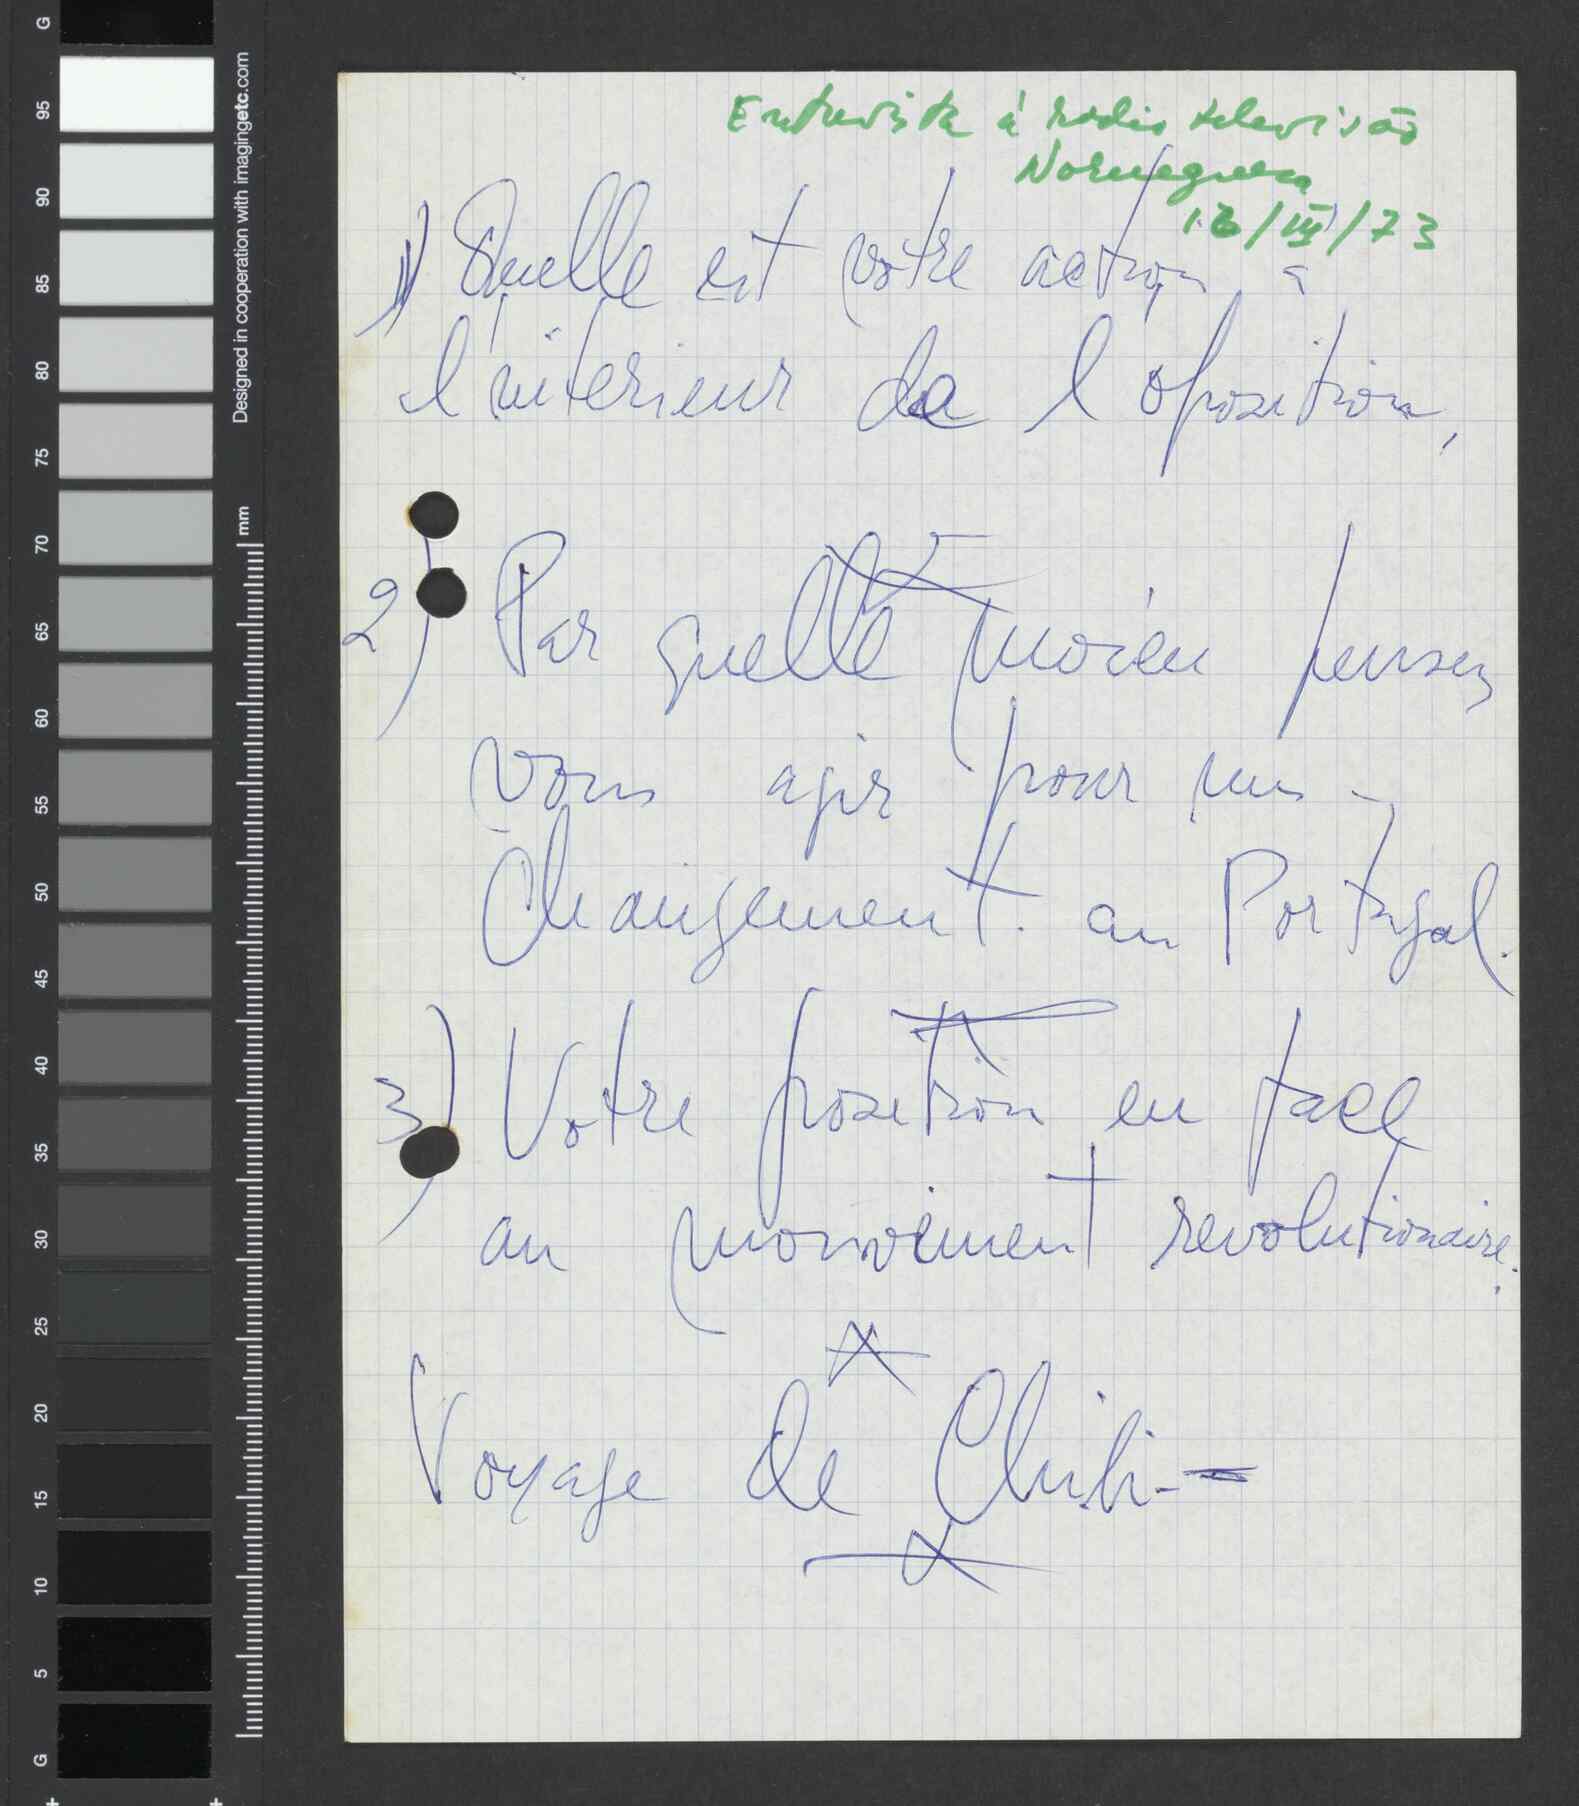 Entrevista á radio televisão
Norueguesa
/III/73
1) Quelle est votre action a
l'interieur de l'oposition,
2) Par quelle moien pensez
vous agir pour un
changement au Portugal.
3) Votre position en face
au mouvement revolutionaire.
Voyage de Chili-
G
95
90
85
80
75
70
65
60
55
50
45
40
35
30
25
20
15
10
5
G
Designed in cooperation with imagingetc.com
mm